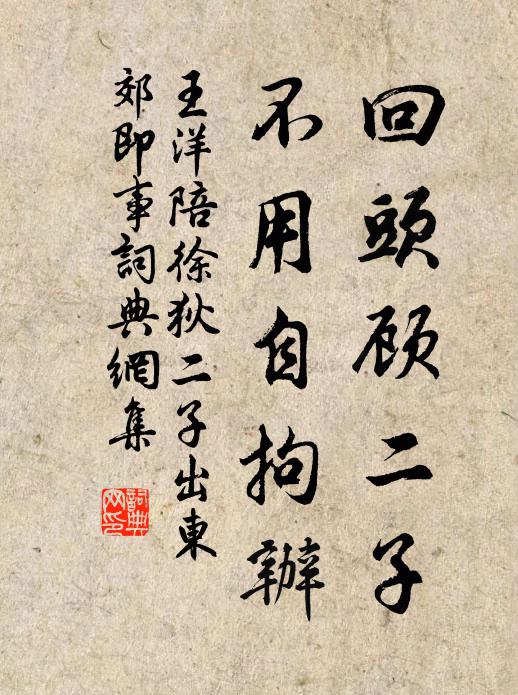 回頭顾二子
不用自拘辦
王洋陪徐狄二子出東
郊即事詞典網集
詞典
网印